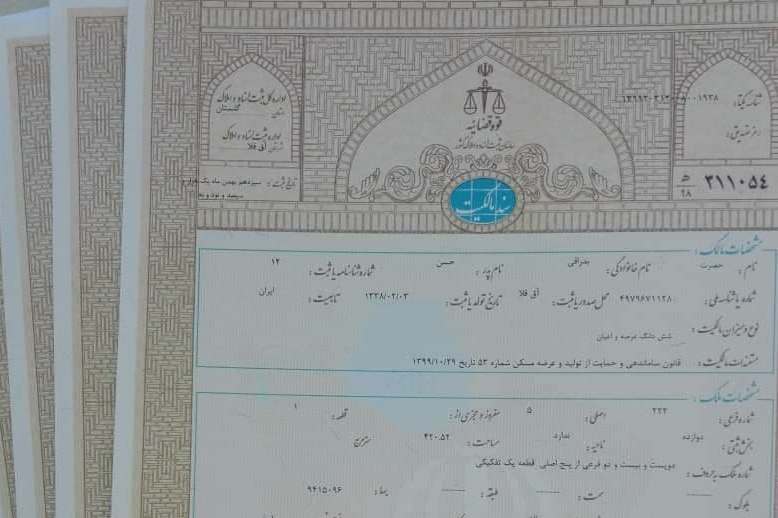 قوه قضائیه
سازمان ثبت اسناد و املاک کشور
سند مالکیت
اداره کل ثبت اسناد و املاک
استان گلستان
اداره ثبت اسناد و املاک
آق قلا
تاریخ ثبت: سیزدهم بهمن ماه یک هزار و
سیصد و نود و
شناسه یکتا:
رمز تصدیق:
۳۱۱۰۵۴
۹۸
مشخصات مالک:
نام: حضرت نام خانوادگی: نام پدر: حسن شماره شناسنامه یا ثبت: ۱۲
شماره یا شناسه ملی: ۴۹۷۹۶۷۱۱۲۸ محل صدور یا ثبت: آق قلا تاریخ تولد یا ثبت: ۱۳۳۸/۰۲/۰۳ تابعیت: ایران
نوع و میزان مالکیت: شش دانگ عرصه و اعیان
مستندات مالکیت: قانون ساماندهی و حمایت از تولید و عرضه مسکن شماره ۵۳ تاریخ ۱۳۹۹/۱۰/۲۹
مشخصات ملک:
شماره فرعی: ۲۲۲ اصلی: ۵ مفروز و مجزی از: قطعه: ۱
بخش ثبتی: دوازده ناحیه: ندارد مساحت: ۴۲۰.۵۲ مترمربع
شماره ملک به حروف: دویست و بیست و دو فرعی از پنج اصلی, قطعه یک تفکیکی
بلوک: سمت: طبقه: بها: ۹۴۱۵۰۹۶